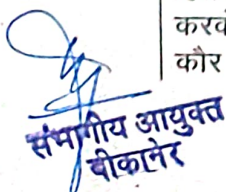 करव
कौर
संभागीय आयुक्त
बीकानेर